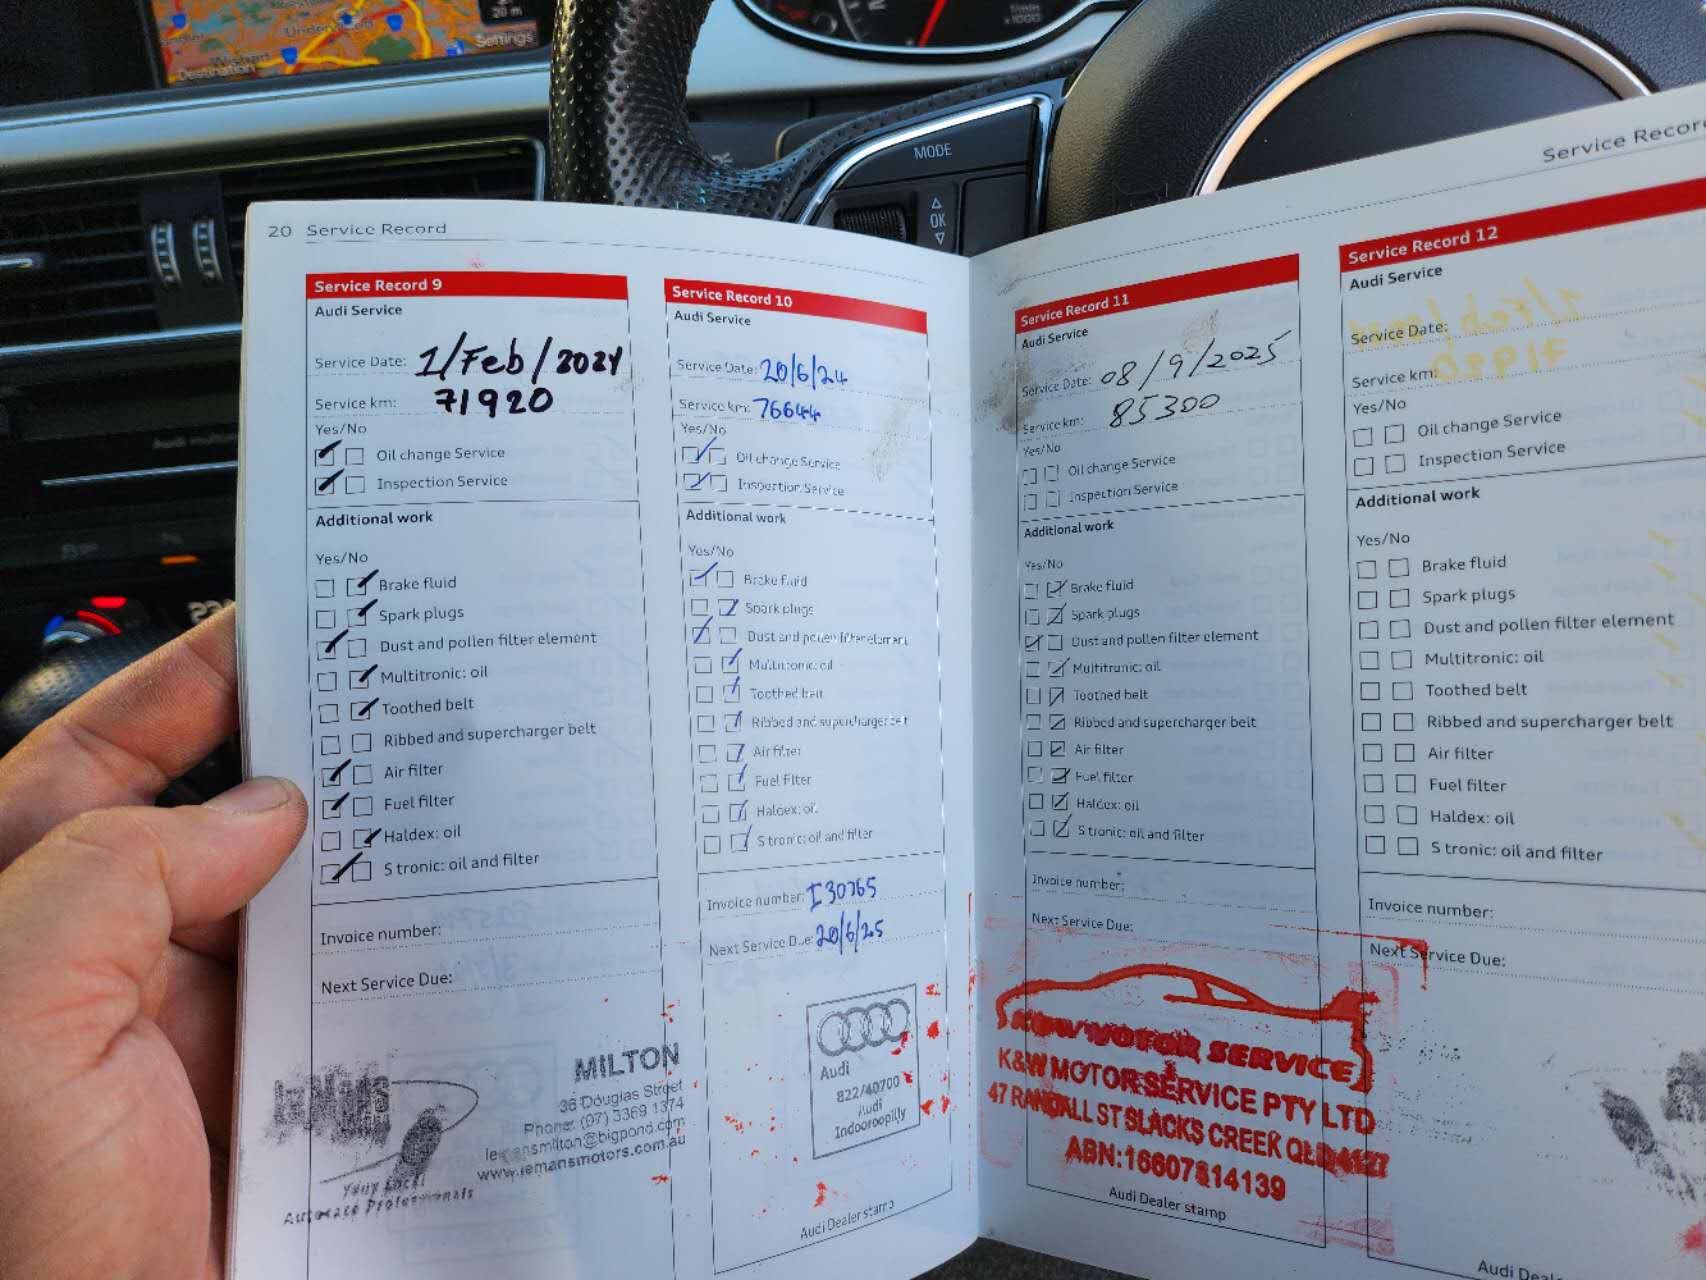 20 m
Settings
Destination
MODE
OK
x1000
20 Service Record
Service Record 9
Audi Service
Service Date: 1/Feb/2024
Service km: 71920
Yes/No
Oil change Service
Inspection Service
Additional work
Yes/No
Brake fluid
Spark plugs
Dust and pollen filter element
Multitronic: oil
Toothed belt
Ribbed and supercharger belt
Air filter
Fuel filter
Haldex: oil
S tronic: oil and filter
Invoice number:
Next Service Due:
MILTON
36 Douglas Street
Phone: (07) 3369 1374
lemansmilton@bigpond.com
www.lemansmotors.com.au
Your Local
Autocare Professionals
Service Record 10
Audi Service
Service Date: 20/6/24
Service km: 76644
Yes/No
Oil change Service
Inspection Service
Additional work
Yes/No
Brake fluid
Spark plugs
Dust and pollen filter element
Multitronic: oil
Toothed belt
Ribbed and supercharger belt
Air filter
Fuel filter
Haldex: oil
S tronic: oil and filter
Invoice number: I30765
Next Service Due: 20/6/25
Audi
822/40700
Audi
Indooroopilly
Audi Dealer stamp
Service Record 11
Audi Service
Service Date: 08/9/2025
Service km: 85300
Yes/No
Oil change Service
Inspection Service
Additional work
Yes/No
Brake fluid
Spark plugs
Dust and pollen filter element
Multitronic: oil
Toothed belt
Ribbed and supercharger belt
Air filter
Fuel filter
Haldex: oil
S tronic: oil and filter
Invoice number:
Next Service Due:
K&W MOTOR SERVICE
K&W MOTOR SERVICE PTY LTD
47 RANDALL ST SLACKS CREEK QLD 4127
ABN:16607814139
Audi Dealer stamp
Service Record
Service Record 12
Audi Service
Service Date:
Service km:
Yes/No
Oil change Service
Inspection Service
Additional work
Yes/No
Brake fluid
Spark plugs
Dust and pollen filter element
Multitronic: oil
Toothed belt
Ribbed and supercharger belt
Air filter
Fuel filter
Haldex: oil
S tronic: oil and filter
Invoice number:
Next Service Due:
Audi